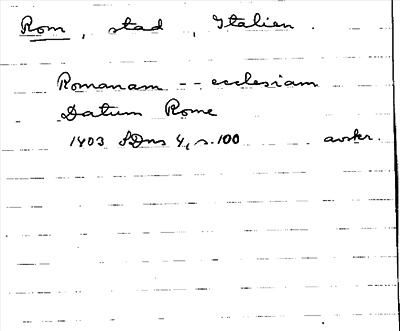 Rom, stad, Italien.
Romanam -- ecclesiam
Datum Rome
1403 SDns 4, s. 100 avskr.